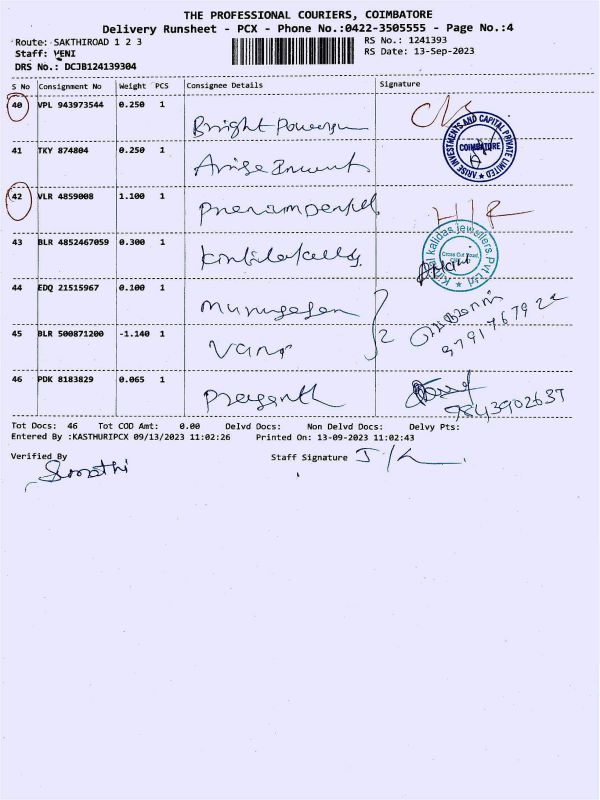 THE PROFESSIONAL COURIERS, COIMBATORE
Delivery Runsheet - PCX - Phone No.:0422-3505555 - Page No.:4
Route: SAKTHIROAD 1 2 3 RS No.: 1241393
Staff: VENI RS Date: 13-Sep-2023
DRS No.: DCJB124139304
S No Consignment No Weight PCS Consignee Details Signature
40 VPL 943973544 0.250 1 Bright
41 TKY 874804 0.250 1 Arise
ARISE INVESTMENTS AND CAPITAL PRIVATE LIMITED COIMBATORE
42 VLR 4859008 1.100 1
43 BLR 4852467059 0.300 1
kalidas jewellers Pvt Ltd Cross Cut Road
44 EDQ 21515967 0.100 1 Murugesan
2
45 BLR 500871200 -1.140 1
46 PDK 8183829 0.065 1
9843902637
Tot Docs: 46 Tot COD Amt: 0.00 Delvd Docs: Non Delvd Docs: Delvy Pts:
Entered By :KASTHURIPCX 09/13/2023 11:02:26 Printed On: 13-09-2023 11:02:43
Verified By Staff Signature